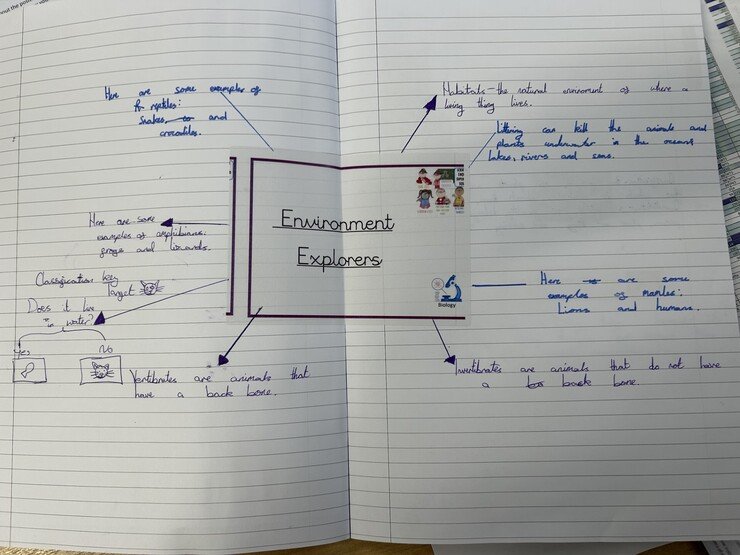 Here are some examples of
reptiles:
Snakes, and
crocodiles.
Habitats - the natural enviroment of where a
living thing lives.
Littering can kill the animals and
plants underwater in the oceans,
lakes, rivers and seas.
Environment
Explorers
Biology
Here are some
examples of amphibians:
frogs and lizards.
Classification key
Target
Does it live
in water?
Yes
No
Here are some
examples of
Lions and humans.
Vertibrates are animals that
have a back bone.
Invertibrates are animals that do not have
a back bone.